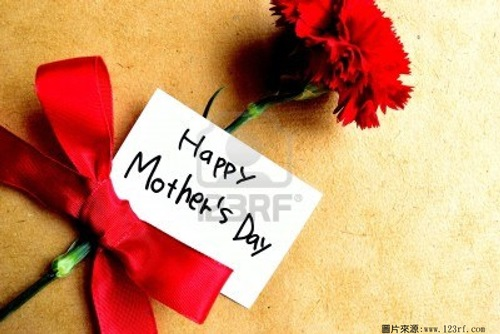 Happy
Mother's Day
123RF
圖片來源:www.123rf.com